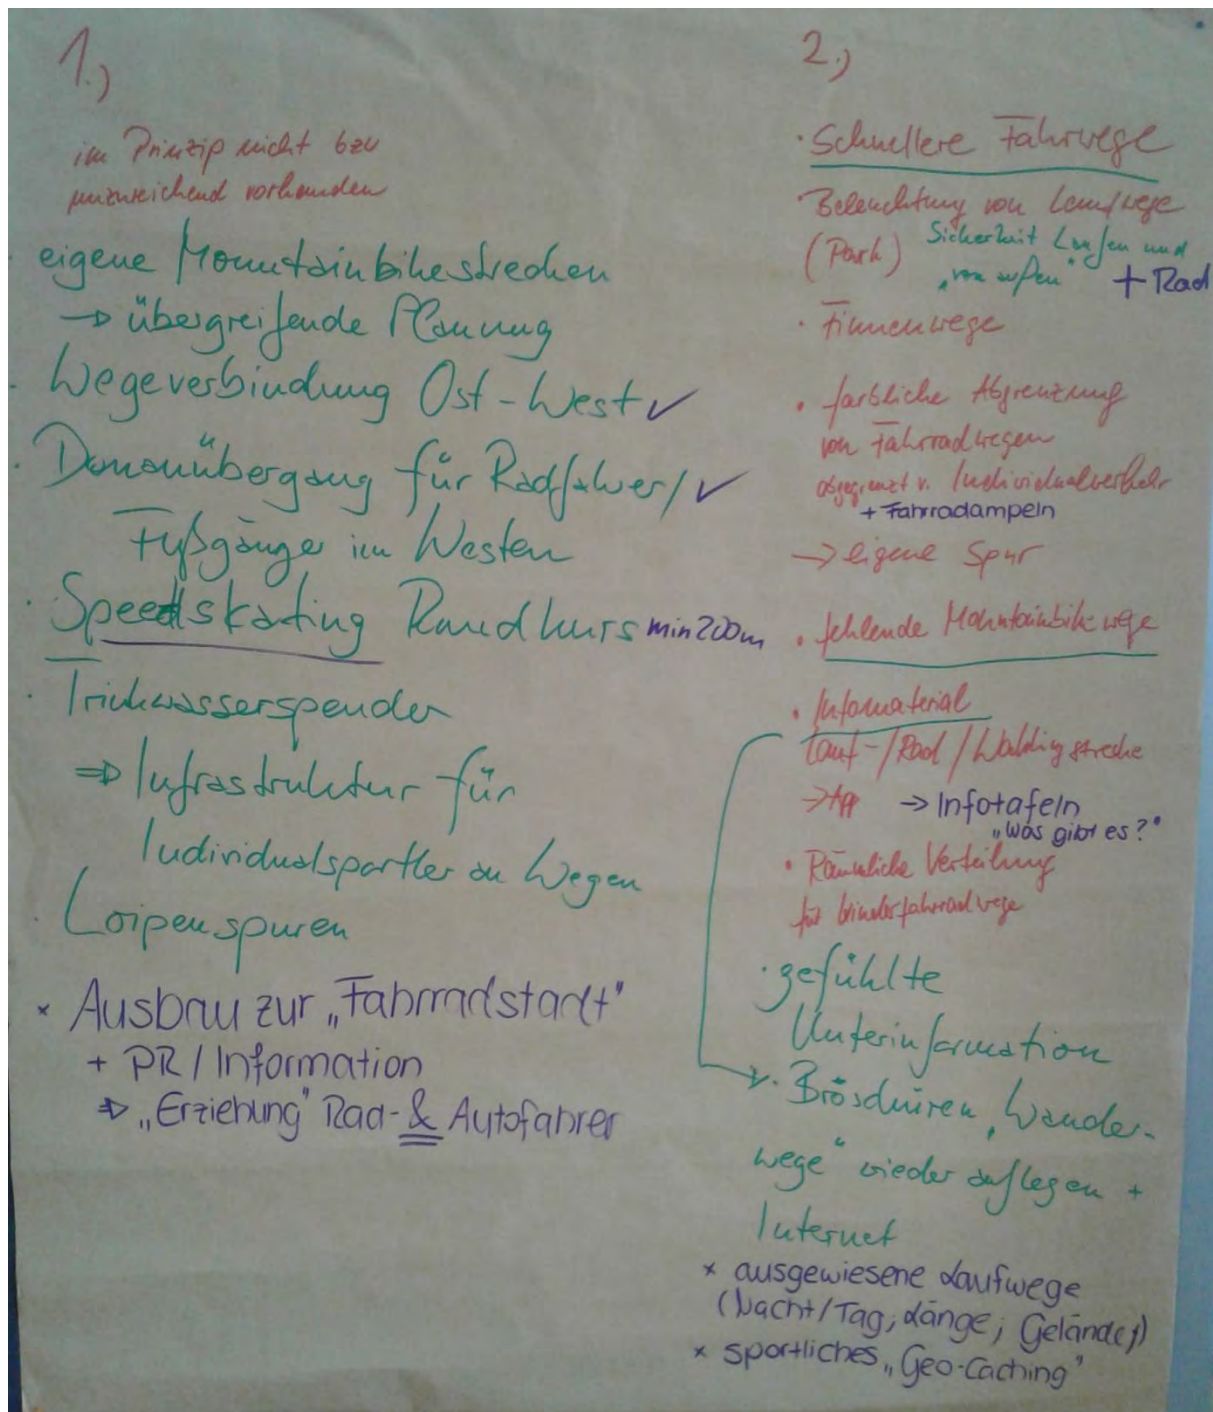 1.)
im Prinzip nicht bzw
unzureichend vorhanden
· eigene Mountainbikestrecken
→ übergreifende Planung
· Wegeverbindung Ost-West ✓
· Donauübergang für Radfahrer/ ✓
Fußgänger im Westen
· Speedskating Rundkurs min 200m
· Trinkwasserspender
⇒ Infrastruktur für
Individualsportler an Wegen
· Loipenspuren
× Ausbau zur „Fahrradstadt"
+ PR / Information
⇒ „Erziehung" Rad- & Autofahrer
2.)
· Schnellere Fahrwege
· Beleuchtung von Laufwege
(Park) Sicherheit Laufen und
„von außen" + Rad
· Finnenwege
· farbliche Abgrenzung
von Fahrradwegen
abgegrenzt v. Individualverkehr
+ Fahrradampeln
→ eigene Spur
· fehlende Mountainbikewege
· Infomaterial
Lauf-/Rad/Walking strecke
→ App → Infotafeln
„Was gibt es?"
· Räumliche Verteilung
für
· gefühlte
Unterinformation
· Broschüren „Wander-
wege" wieder auflegen +
Internet
× ausgewiesene Laufwege
(Nacht/Tag, Länge, Gelände,)
× sportliches „Geo-Caching"